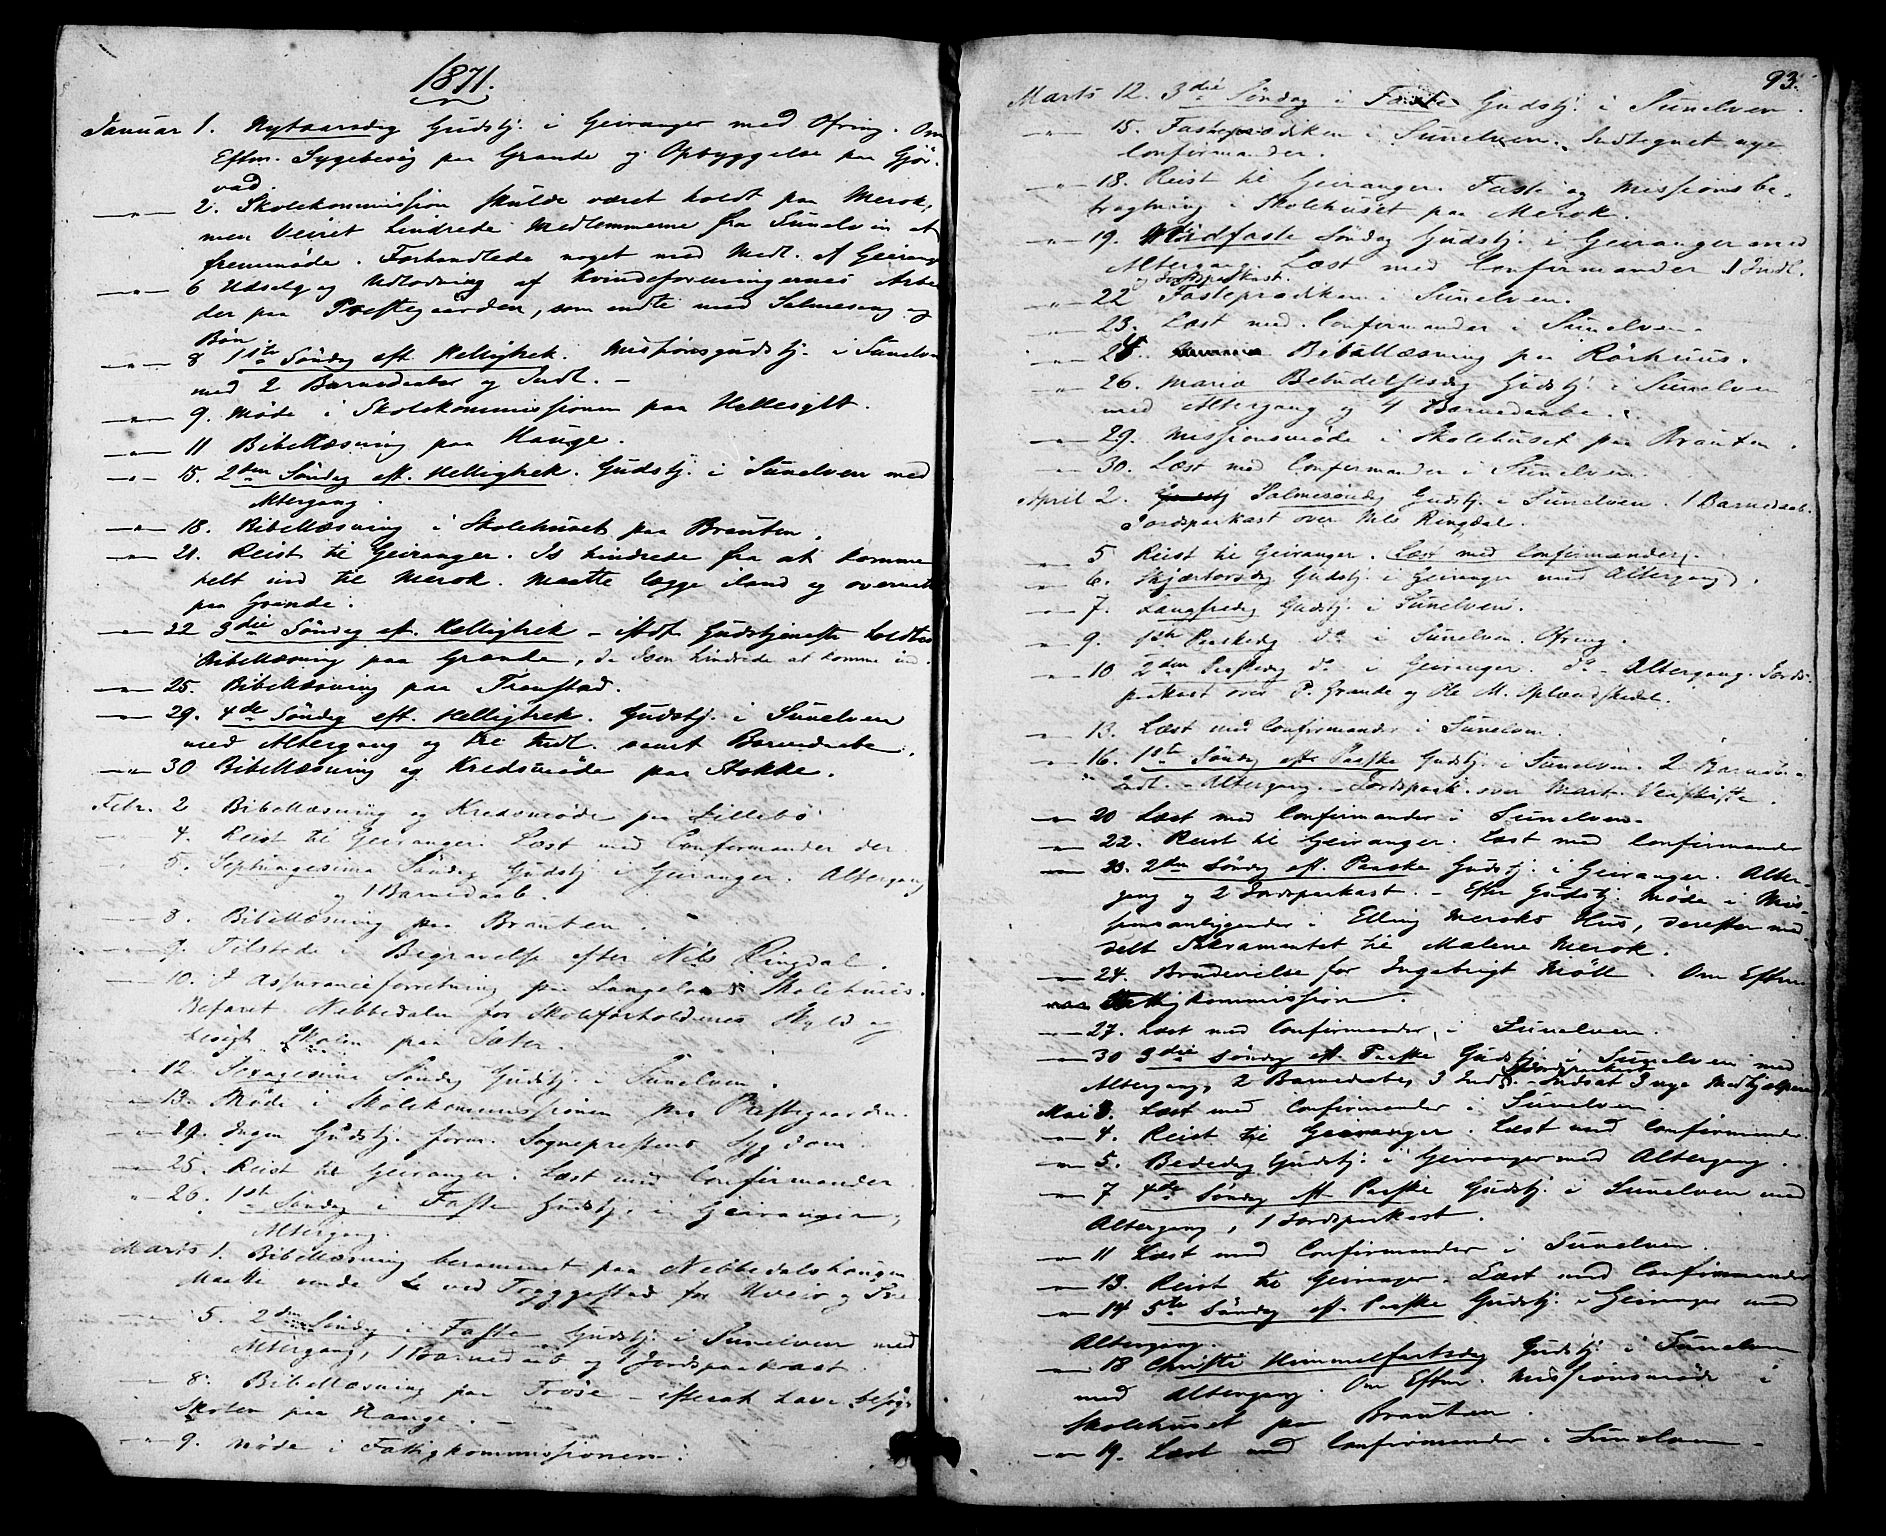 1871.
Januar 1. Nytaarsdag Gudstj. i Geiranger med Ofring. Om
Efterm. Sygebesøg paa Grande og Opbyggelse paa Gjør-
vad.
—"— 2. Skolekommission skulde været holdt paa Merok,
men Veiret hindrede Medlemmerne fra Sunelven at
fremmøde. Forhandlede noget med Medl. af Geirang
—"— 6 Udsalg og Udlodning af Kvindeforeningernes Arbei
der paa Prestegaarden, som endte med Salmesang og
Bøn
—"— 8 1ste Søndag eft. Helligtrek. Missionsgudstj. i Sunelv
med 2 Barnedaaber og Indl. —
—"— 9. Møde i Skolekommissionen paa Hellesylt.
—"— 11 Bibellæsning paa Hauge.
—"— 15. 2den Søndag eft. Helligtrek. Gudstj. i Sunelven med
Altergang.
—"— 18. Bibellæsning i Skolehuset paa Brauten.
—"— 21. Reist til Geiranger. Is hindrede fra at komme
helt ind til Merok. Maatte lægge iland og overnatte
paa Grande.
—"— 22 3die Søndag eft. Helligtrek — istdf. Gudstjeneste holdtes
Bibellæsning paa Grande, da Isen hindrede at komme ind.
—"— 25. Bibellæsning paa Tronstad.
—"— 29. 4de Søndag eft. Helligtrek. Gudstj. i Sunelven
med Altergang og tre Indl. samt Barnedaab.
—"— 30 Bibellæsning og Kredsmøde paa Stokke.
Febr. 2 Bibellæsning og Kredsmøde paa Lillebø
4. Reist til Geiranger. Læst med Confirmander der
5. Septuagesima Søndag Gudstj. i Geiranger. Altergang
og 1 Barnedaab.
8. Bibellæsning paa Brauten.
—"— 9. Tilstede i Begravelse efter Nils Ringdal.
10. I Assuranceforretning paa Langeland Skolehuus.
Befaret Nebbedalen for Skoleforholdenes Skyld og
besøgt Skolen paa Sæter.
—"— 12. Sexagesima Søndag Gudstj. i Sunelven.
—"— 13. Møde i Skolekommissionen paa Prestegaarden.
—"— 19. Ingen Gudstj. form. Sogneprestens Sygdom.
—"— 25. Reist til Geiranger. Læst med Confirmander
—"— 26. 1ste Søndag i Faste Gudstj. i Geiranger,
Altergang.
Marts 1. Bibellæsning berammet paa Nebbedalshaugen
Maatte vende ved Tryggestad for Uveir og
5. 2den Søndag i Faste Gudstj. i Sunelven med
Altergang, 1 Barnedaab og 1 Jordspaakast.
8. Bibellæsning paa Frøse — efterat have besøgt
Skolen paa Hauge. —
—"— 9. Møde i Fattigkommissionen.
93.
Marts 12. 3die Søndag i Faste Gudstj. i Sunelven.
—"— 15. Fasteprædiken i Sunelven. Indtegnet nye
Confirmander.
—"— 18. Reist til Geiranger. Faste og Missionsbe-
tragtning i Skolehuset paa Merok.
—"— 19. Midfaste Søndag Gudstj. i Geiranger med
Altergang. Læst med Confirmander 1 Indl.
og Jordspaakast.
—"— 22 Fasteprædiken i Sunelven.
—"— 23. Læst med Confirmander i Sunelven.
—"— 24. Bibellæsning paa Rørhuus.
—"— 26. Maria Bebudelsesdag Gudstj. i Sunelven
med Altergang og 4 Barnedaabe.
—"— 29. Missionsmøde i Skolehuset paa Brauten.
—"— 30. Læst med Confirmander i Sunelven.
April 2. Gudstj Palmesøndag Gudstj. i Sunelven. 1 Barnedaab.
Jordspaakast over Nils Ringdal.
—"— 5 Reist til Geiranger. Læst med Confirmander.
—"— 6. Skjærtorsdag Gudstj. i Geiranger med Altergang.
—"— 7. Langfredag Gudstj. i Sunelven.
—"— 9. 1ste Paaskedag do i Sunelven. Ofring.
—"— 10 2den Paaskedag do i Geiranger. do. Altergang. Jords-
paakast over P. Grande og Ole M.
—"— 13. Læst med Confirmander i Sunelven.
—"— 16. 1ste Søndag efter Paaske Gudstj. i Sunelven. 2 Barnd.
Indl. — Altergang. — Jordspaak. over Mart.
—"— 20 Læst med Confirmander i Sunelven.
—"— 22. Reist til Geiranger. Læst med Confirmander
—"— 23. 2den Søndag eft. Paaske Gudstj. i Geiranger. Alter-
gang og 2 Jordspaakast. — Efter Gudstj. Møde i Mis-
sionsanliggender i Elling Meroks Hus, derefter med-
delt Sakramentet til Malene Merok.
—"— 24. Brudevielse for Ingebrigt Möll. Om Efterm
Fattigkommission.
—"— 27. Læst med Confirmander i Sunelven.
—"— 30 3die Søndag eft. Paaske Gudstj. i Sunelven med
Jordspaakast
Altergang, 2 Barnedaaber, 3 Indl. Indsat 3 nye Medhjælpere
Mai 3. Læst med Confirmander i Sunelven.
—"— 4. Reist til Geiranger. Læst med Confirmander.
—"— 5. Bededag Gudstj. i Geiranger med Altergang.
—"— 7 4de Søndag eft. Paaske Gudstj. i Sunelven med
Altergang, 1 Jordspaakast.
—"— 11 Læst med Confirmander i Sunelven.
—"— 13. Reist til Geiranger. Læst med Confirmander
—"— 14 5te Søndag eft. Paaske Gudstj. i Geiranger med
Altergang.
—"— 18 Christi Himmelfartsdag Gudstj. i Sunelven
med Altergang. Om Efterm. Missionsmøde i
Skolehuset paa Brauten.
—"— 19. Læst med Confirmander i Sunelven.